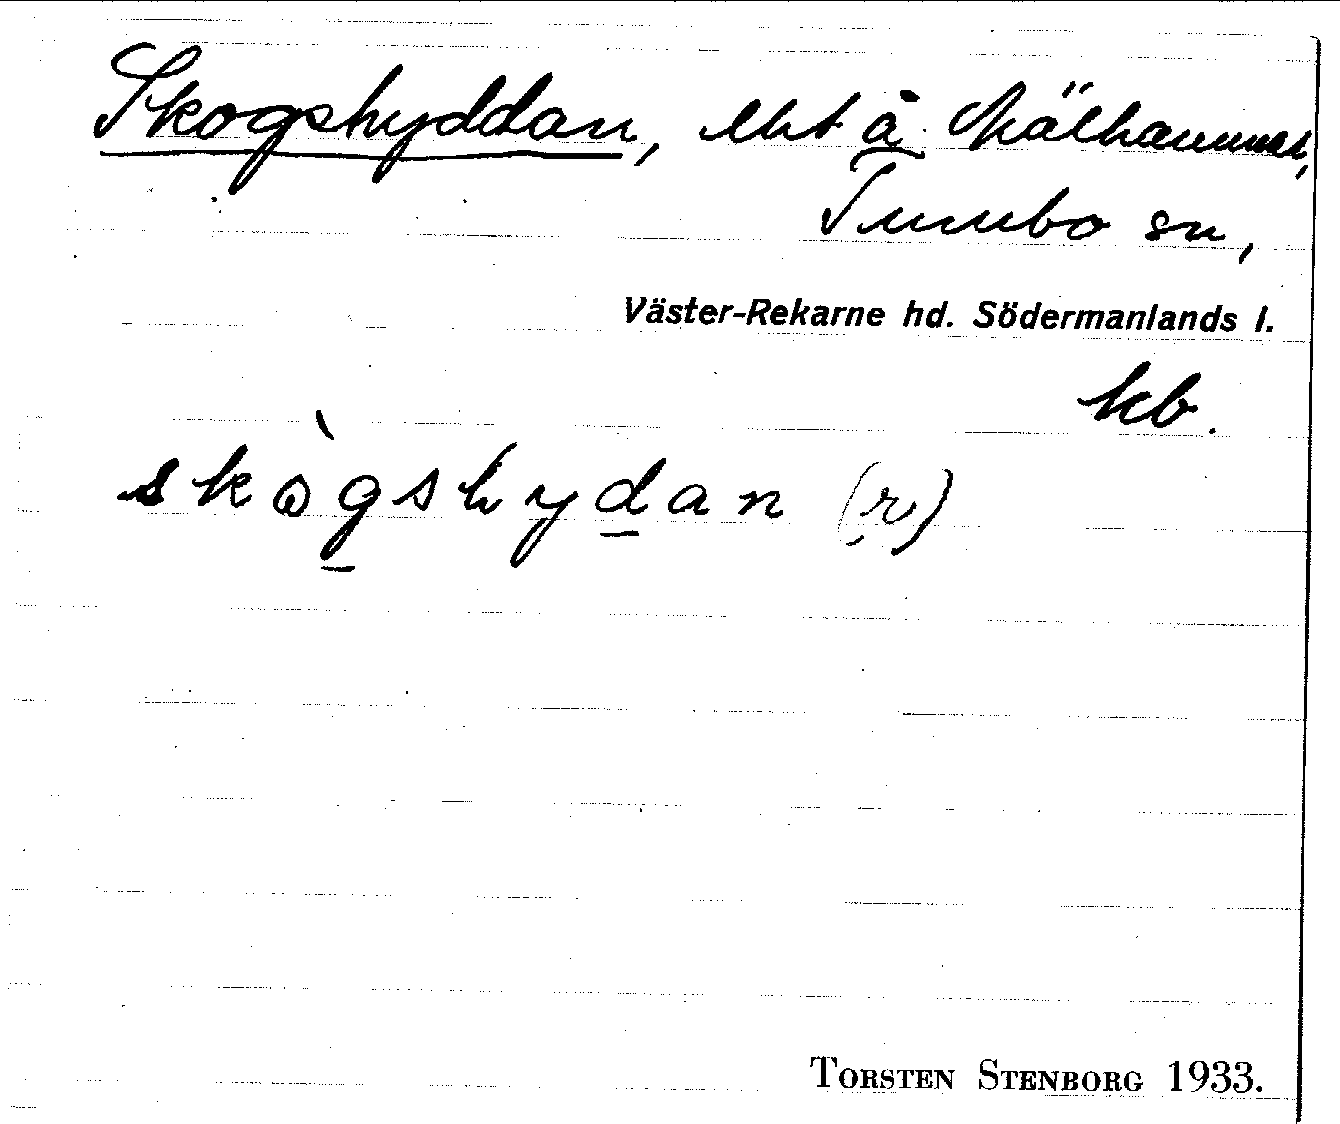 Skogshyddan, lht å Kälhammar,
Tumbo sn,
Väster-Rekarne hd. Södermanlands l.
kb.
skògshydan (r)
TORSTEN STENBORG 1933.